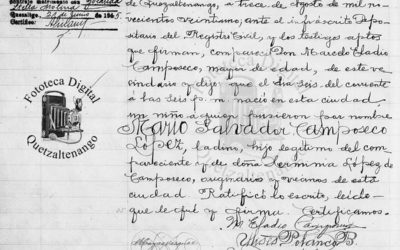 Stella Molina
Quezaltgo. 25 de Junio de 1965
Certifico:
Fototeca Digital
Quetzaltenango
de Quezaltenango, a trece de Agosto de mil no-
vecientos veintiuno, ante el infrascrito Depo-
sitario del Registro Civil, y los testigos aptos
que firman, compareció Don Marcelo Eladio
Camposeco, mayor de edad, de este ve-
cindario y dijo: que el dia seis del corriente
a las seis p. m. nació en esta ciudad
un niño a quien pusieron por nombre
Mario Salvador Camposeco
López, ladino, hijo legítimo del com-
pareciente y de doña Herminia López de
Camposeco, originarios y vecinos de esta
ciudad. Ratificó lo escrito, leído
que le fué y firma. Certificamos.
M. Eladio Camposeco